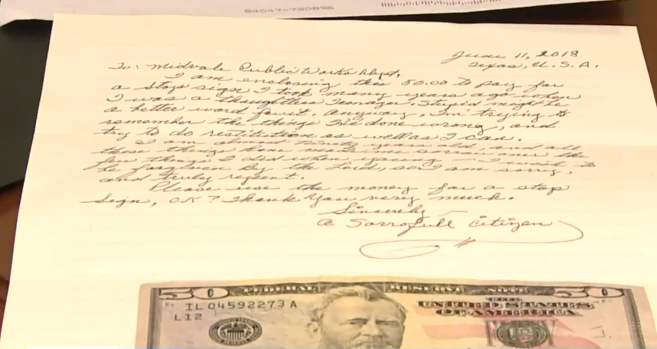 84047-720896
June 11, 2018
Texas, U.S.A.
To: Midvale Public Works Dept,
I am enclosing this 50.00 to pay for
a stop sign I took many years ago when
I was a thoughtless teenager, stupid might be
a better word for it. Anyway, I'm trying to
remember the things I've done wrong, and
try to do restitution as well as I can.
I am almost ninety years old, and all
these things
few things I did when young I wish to
be forgiven by the Lord, so I am sorry,
and truly repent.
Please use the money for a stop
sign, OK? Thank you very much.
Sincerely
a Sorrofull Citizen
50 FEDERAL RESERVE NOTE 50
IL 04592273 A
L12
THE
UNITED STATES
OF AMERICA